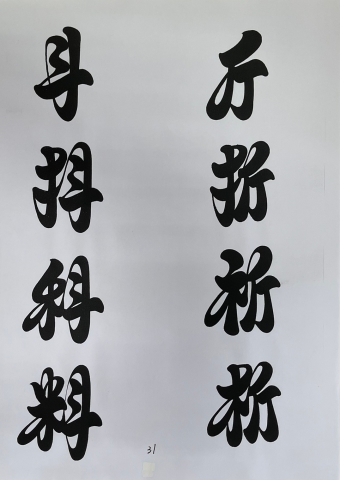 斗 斤
抖 折
科 祈
料 析
31